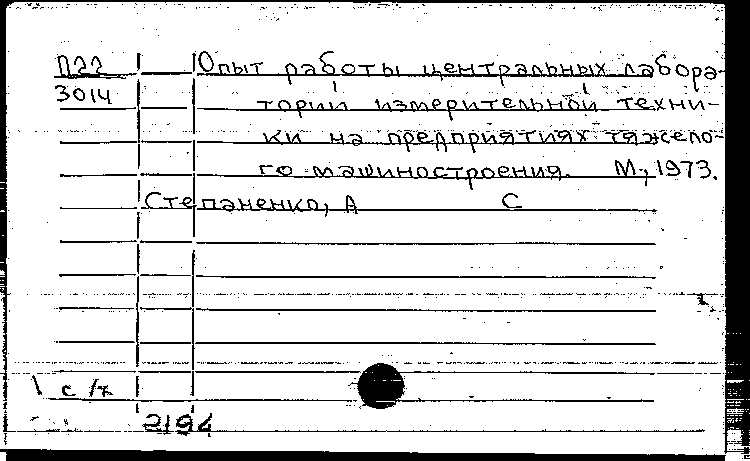 П22 Опыт работы центральных лабора-
3014 торий измерительной техни-
ки на предприятиях тяжело-
го машиностроения. М., 1973.
Степаненко, А С
с/х
2194